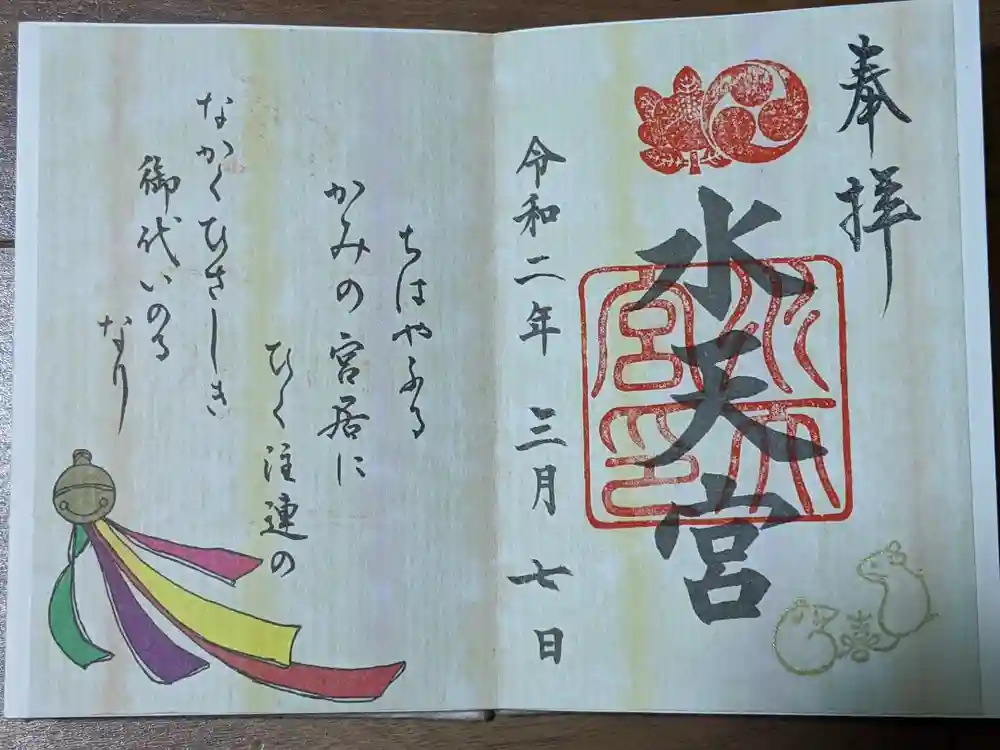 奉拝
水天宮
水天宮印
令和二年 三月 七日
ちはやふる
かみの宮居に
ひく注連の
なかくひさしき
御代いのる
なり